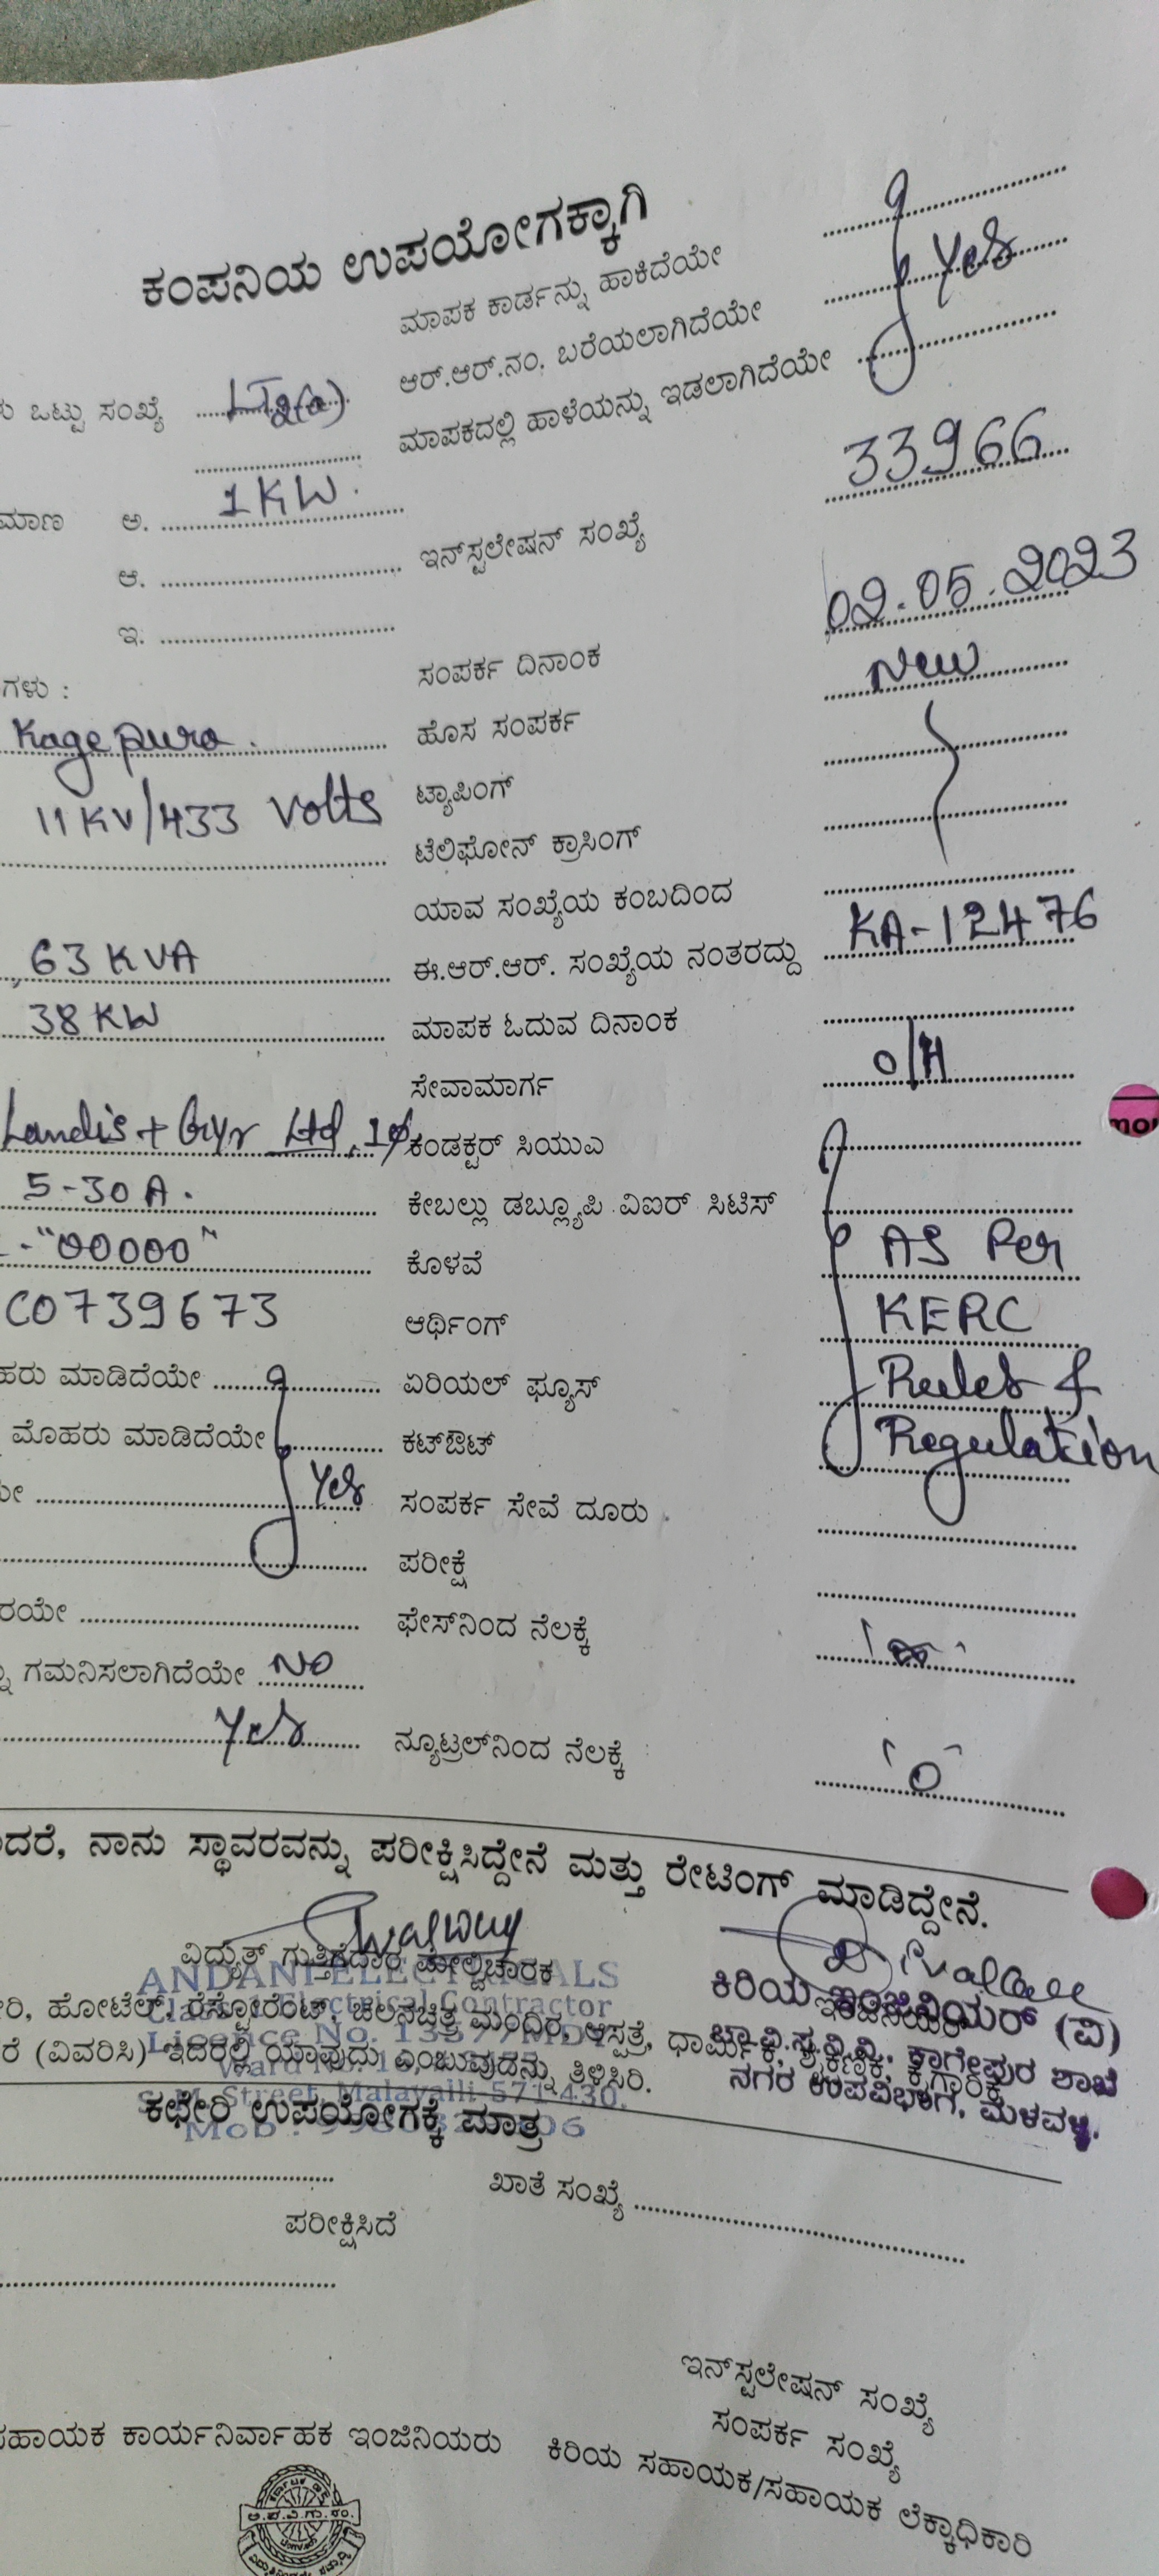 ಕಂಪನಿಯ ಉಪಯೋಗಕ್ಕಾಗಿ
ಮಾಪಕ ಕಾರ್ಡನ್ನು ಹಾಕಿದೆಯೇ
ಆರ್.ಆರ್.ನಂ. ಬರೆಯಲಾಗಿದೆಯೇ Yes
ಒಟ್ಟು ಸಂಖ್ಯೆ LT2(a) ಮಾಪಕದಲ್ಲಿ ಹಾಳೆಯನ್ನು ಇಡಲಾಗಿದೆಯೇ
ಅ. 1KW.
ಆ. ಇನ್‌ಸ್ಟಲೇಷನ್ ಸಂಖ್ಯೆ 33966
ಇ.
ಗಳು : ಸಂಪರ್ಕ ದಿನಾಂಕ 02.05.2023
Kagepura. ಹೊಸ ಸಂಪರ್ಕ New
11KV/433 Volts ಟ್ಯಾಪಿಂಗ್
ಟೆಲಿಫೋನ್ ಕ್ರಾಸಿಂಗ್
ಯಾವ ಸಂಖ್ಯೆಯ ಕಂಬದಿಂದ
63 KVA ಈ.ಆರ್.ಆರ್. ಸಂಖ್ಯೆಯ ನಂತರದ್ದು KA-12476
38 KW ಮಾಪಕ ಓದುವ ದಿನಾಂಕ
ಸೇವಾಮಾರ್ಗ O/H
Landis + Gyr Ltd, 1ϕ ಕಂಡಕ್ಟರ್ ಸಿಯುಎ
5-30A. ಕೇಬಲ್ಲು ಡಬ್ಲ್ಯೂಪಿ ವಿಐರ್ ಸಿಟಿಸ್
-"00000" ಕೊಳವೆ AS Per
C0739673 ಆರ್ಥಿಂಗ್ KERC
ಹರು ಮಾಡಿದೆಯೇ ಏರಿಯಲ್ ಫ್ಯೂಸ್ Rules &
ಮೊಹರು ಮಾಡಿದೆಯೇ ಕಟ್‌ಔಟ್ Regulation
Yes ಸಂಪರ್ಕ ಸೇವೆ ದೂರು
ಪರೀಕ್ಷೆ
ರಯೇ ಫೇಸ್‌ನಿಂದ ನೆಲಕ್ಕೆ
ಗಮನಿಸಲಾಗಿದೆಯೇ NO
Yes ನ್ಯೂಟ್ರಲ್‌ನಿಂದ ನೆಲಕ್ಕೆ 'O'
ದರೆ, ನಾನು ಸ್ಥಾವರವನ್ನು ಪರೀಕ್ಷಿಸಿದ್ದೇನೆ ಮತ್ತು ರೇಟಿಂಗ್ ಮಾಡಿದ್ದೇನೆ.
ವಿದ್ಯುತ್ ಗುತ್ತಿಗೆದಾರ ಮೇಲ್ವಿಚಾರಕ
ANDANI ELECTRICALS
Class-1 Electrical Contractor
Street, Malavalli-571 430.
ಕಿರಿಯ ಇಂಜಿನಿಯರ್ (ವಿ)
ಚಾ.ವಿ.ಸ.ನಿ.ನಿ., ಕಾಗೇಪುರ ಶಾಖೆ
ನಗರ ಉಪವಿಭಾಗ, ಮಳವಳ್ಳಿ.
ರಿ, ಹೋಟೆಲ್, ರೆಸ್ಟೋರೆಂಟ್, ಚಲನಚಿತ್ರ ಮಂದಿರ, ಆಸ್ಪತ್ರೆ, ಧಾರ್ಮಿಕ, ಶೈಕ್ಷಣಿಕ, ಕೈಗಾರಿಕೆ
ರೆ (ವಿವರಿಸಿ) ಇದರಲ್ಲಿ ಯಾವುದು ಎಂಬುವುದನ್ನು ತಿಳಿಸಿರಿ.
ಕಛೇರಿ ಉಪಯೋಗಕ್ಕೆ ಮಾತ್ರ
ಖಾತೆ ಸಂಖ್ಯೆ
ಪರೀಕ್ಷಿಸಿದೆ
ಇನ್‌ಸ್ಟಲೇಷನ್ ಸಂಖ್ಯೆ
ಸಂಪರ್ಕ ಸಂಖ್ಯೆ
ಸಹಾಯಕ ಕಾರ್ಯನಿರ್ವಾಹಕ ಇಂಜಿನಿಯರು ಕಿರಿಯ ಸಹಾಯಕ/ಸಹಾಯಕ ಲೆಕ್ಕಾಧಿಕಾರಿ